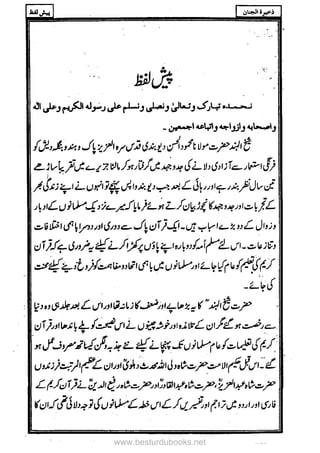 پیش لفظ
ذخیرۃ الجنان
پیش لفظ
نحمدہ تبارک وتعالیٰ ونصلی ونسلم علی رسولہ الکریم وعلی الہ
واصحابہ وازواجہ واتباعہ اجمعین ۔
شیخ الہند حضرت مولانا محمود الحسن دیوبندی قدس سرہ العزیز پاک وہند وبنگلہ دیش کو
فرنگی استعمار سے آزادی دلانے کی جدوجہد میں گرفتار ہو کر مالٹا جزیرے میں تقریباً ساڑھے
تین سال نظر بند رہے اور رہائی کے بعد جب دیوبند واپس پہنچے تو انہوں نے اپنے زندگی بھر
کے تجربات اور جدوجہد کا نچوڑ بیان کرتے ہوئے فرمایا کہ میرے نزدیک مسلمانوں کے ادبار
وزوال کے دو بڑے اسباب ہیں۔ ایک قرآن پاک سے دوری اور دوسرا باہمی اختلافات
وتنازعات ۔ اس لئے مسلم امہ کو دوبارہ اپنے پاؤں پر کھڑا کرنے کیلئے یہ ضروری ہے کہ قرآن
کریم کی تعلیم کو عام کیا جائے اور مسلمانوں میں باہمی اتحاد ومفاہمت کو فروغ دینے کیلئے محنت
کی جائے۔
حضرت شیخ الہند کا یہ بڑھاپے اور ضعف کا زمانہ تھا اور اس کے بعد جلد ہی وہ دنیا
سے رخصت ہو گئے مگر ان کے تلامذہ اور خوشہ چینوں نے اس نصیحت کو پلے باندھا اور قرآن
کریم کی تعلیمات کو عام مسلمانوں تک پہنچانے کیلئے نئے جذبہ ولگن کیساتھ مصروف عمل ہو
گئے۔ اس قبل حکیم الامت حضرت شاہ ولی اللہ محدث دہلوی اور ان کے عظیم المرتبت فرزندوں
حضرت شاہ عبدالعزیز، حضرت شاہ عبدالقادر اور حضرت شاہ رفیع الدین نے قرآن کریم کے
فارسی اور اردو میں تراجم اور تفسیریں کر کے اس خطہ کے مسلمانوں کی توجہ دلائی تھی کہ ان کا
www.besturdubooks.net